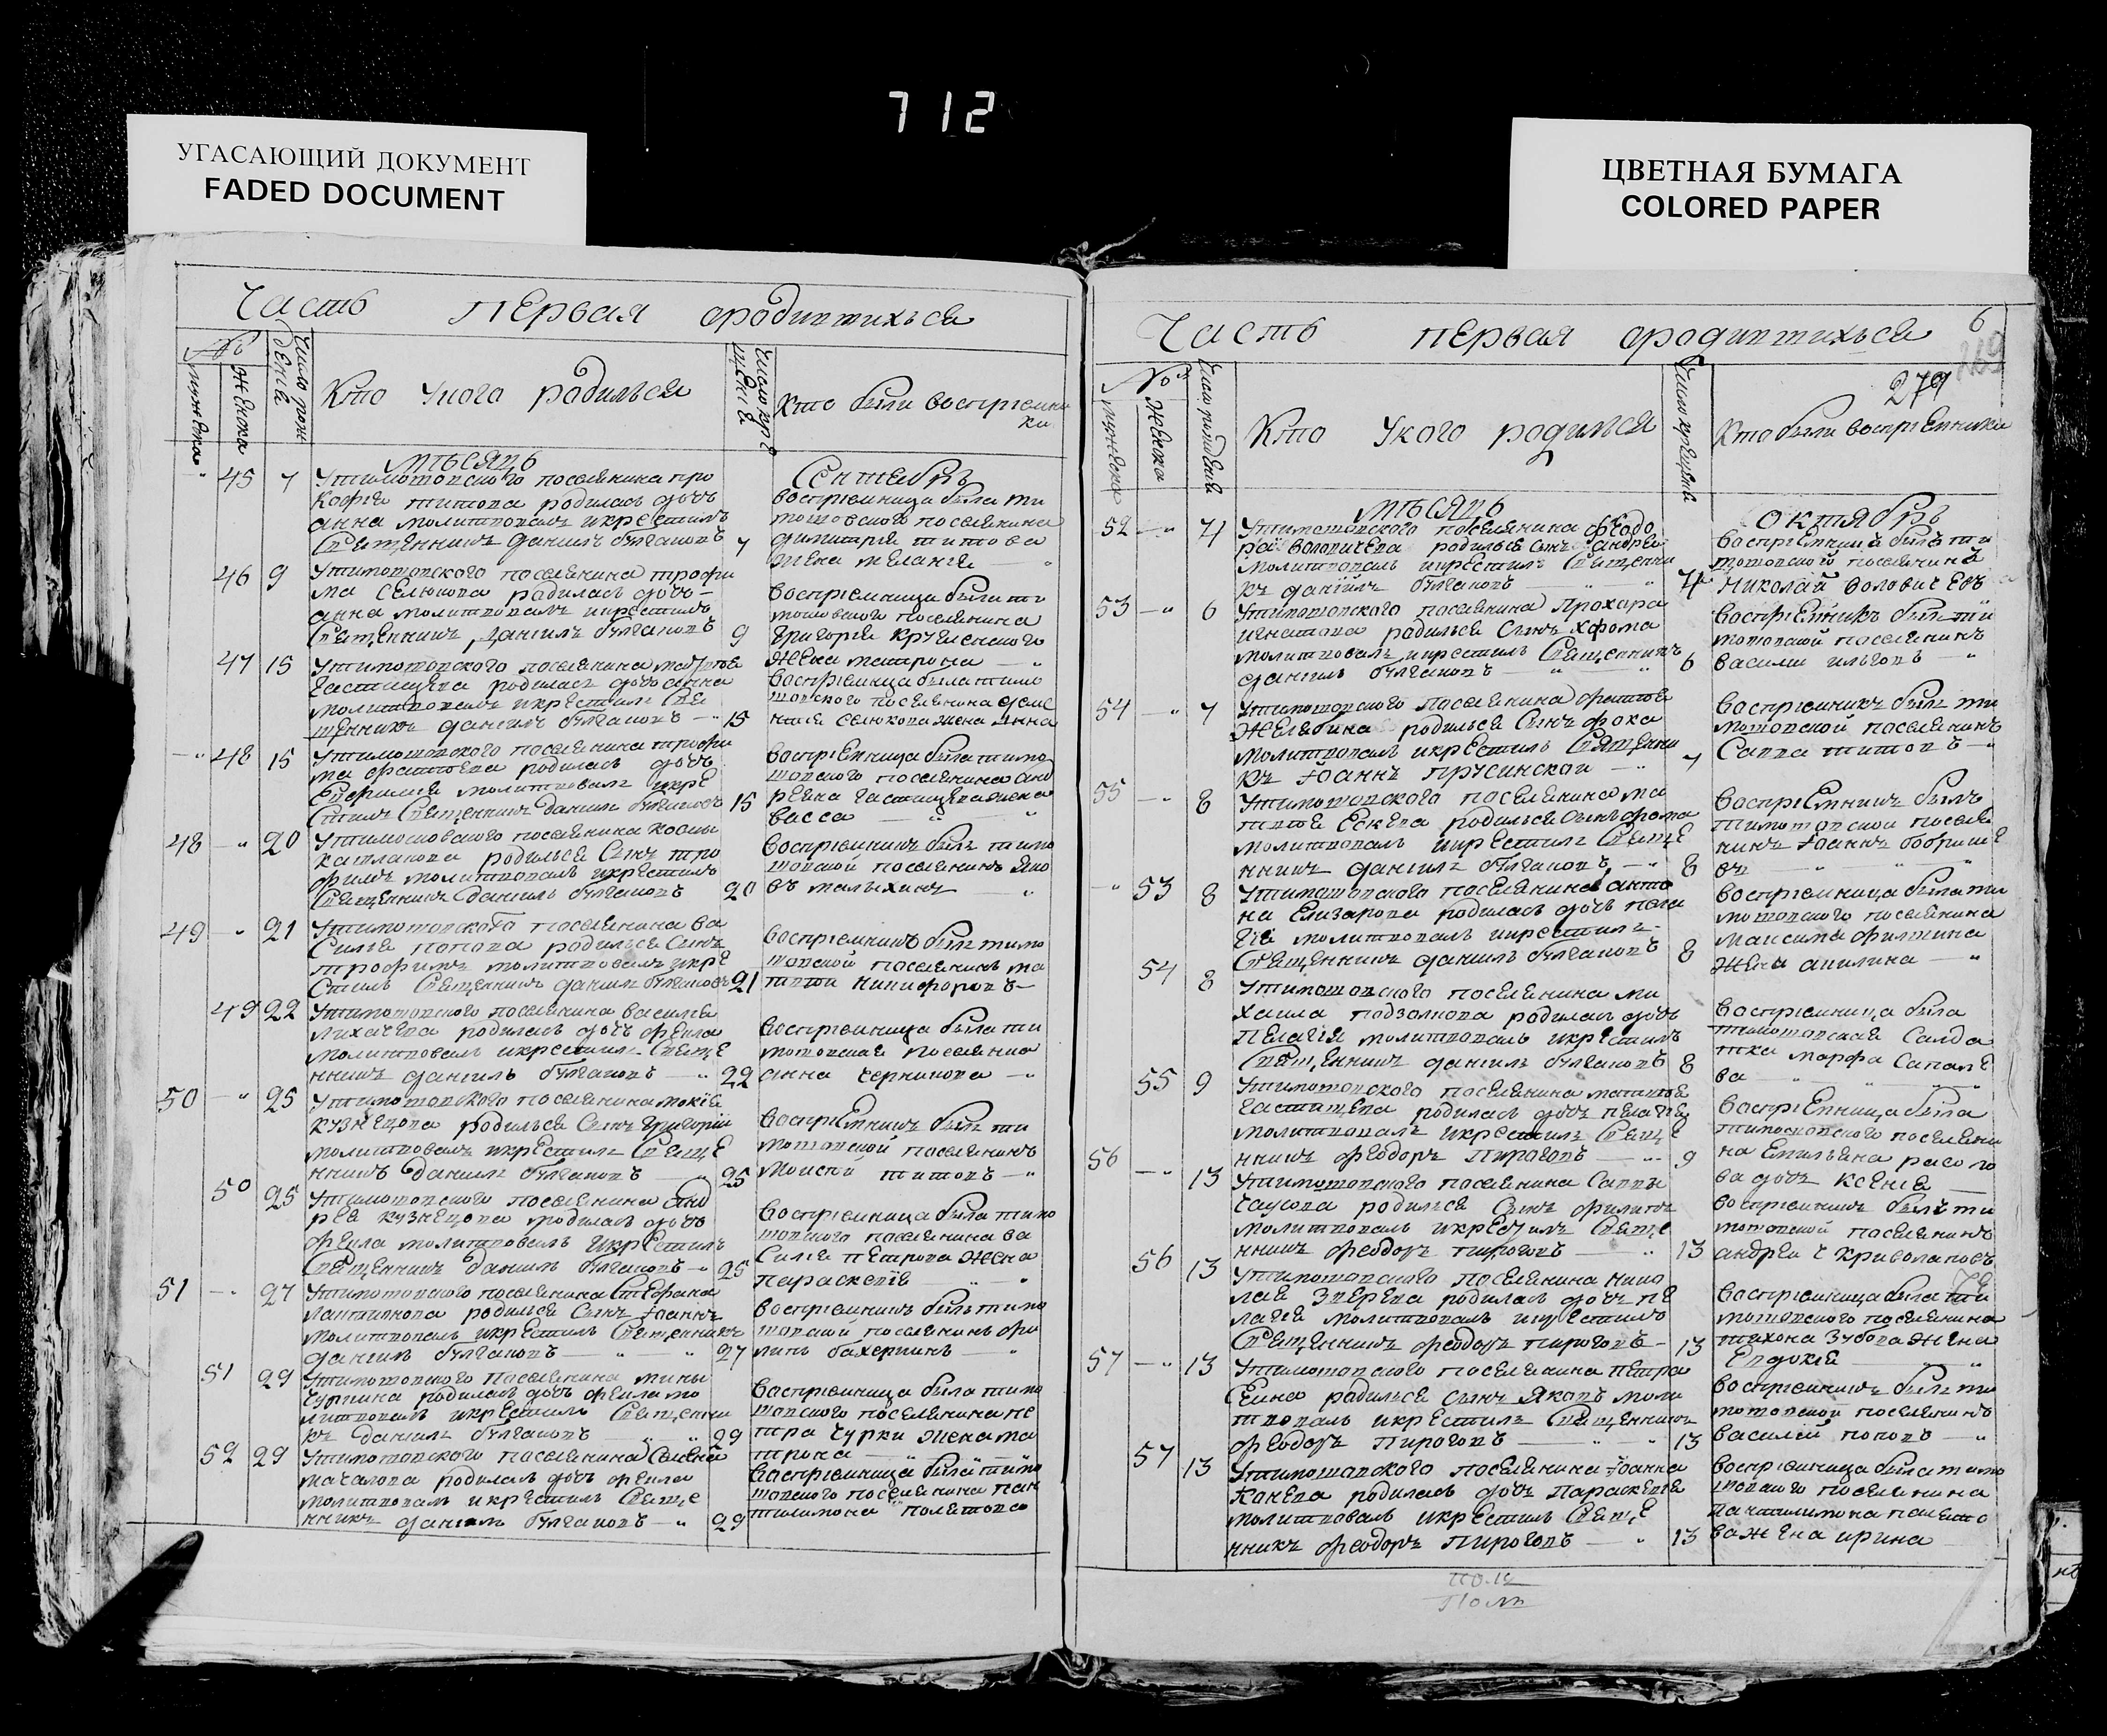 712
УГАСАЮЩИЙ ДОКУМЕНТ
FADED DOCUMENT
ЦВЕТНАЯ БУМАГА
COLORED PAPER
Часть первая ородившихься
№
мужска
женска
Число рож
дения
Кто Укого родилься
Число кре
щения
Кто были восприемни
ки
мѣсяцъ
Сентябрь
45 7 Утимотовского поселянина про
кофия титова родилась дочь
анна молитвовалъ икрестилъ
Священникъ данiилъ булгаковъ 7
восприемница была ти
мотовского поселянина
димитрия титова
жена меланiя
46 9 Утимотовского поселянина трофи
ма Селюкова родилась дочь
анна молитвовалъ икрестилъ
Священникъ данiилъ булгаковъ 9
восприемница была ти
мотовского поселянина
григория
жена матрона
47 15 Утимотовского поселянина матвея
Частищева родилась дочь анна
молитвовалъ икрестилъ Свя
щенникъ данiилъ булгаковъ 15
восприемница была тимо
товского поселянина денис
ия Селюкова жена анна
48 15 Утимотовского поселянина трофи
ма фатеева родилась дочь
Ефимия молитвовалъ икре
стилъ Священникъ данiилъ булгаковъ 15
восприемница была тимо
товского поселянина анд
рея Частищева жена
васса
48 20 Утимотовского поселянина космы
катланова родилься Сынъ тро
фимъ молитвовалъ икрестилъ
Священникъ данiилъ булгаковъ 20
восприемникъ былъ тимо
товской поселянинъ яко
въ малыхинъ
49 21 Утимотовского поселянина ва
Силия попова родилься Сынъ
трофимъ молитвовалъ икре
стилъ Священникъ данiилъ булгаковъ 21
восприемникъ былъ тимо
товской поселянинъ ма
твей никифоровъ
49 22 Утимотовского поселянина василия
лихачева родилась дочь фекла
молитвовалъ икрестилъ Свяще
нникъ данiилъ булгаковъ 22
восприемница была ти
мотовская поселянка
анна черникова
50 25 Утимотовского поселянина мокiя
кузнецова родилься Сынъ григорiй
молитвовалъ икрестилъ Свяще
нникъ данiилъ булгаковъ 25
восприемникъ былъ ти
мотовской поселянинъ
моисей титовъ
50 25 Утимотовского поселянина анд
рея кузнецова родилась дочь
фекла молитвовалъ икрестилъ
Священникъ данiилъ булгаковъ 25
восприемница была тимо
товского поселянина ва
Силия петрова жена
параскевiя
51 27 Утимотовского поселянина Стефана
лактионова родилься Сынъ Iоаннъ
молитвовалъ икрестилъ Священникъ
данiилъ булгаковъ 27
восприемникъ былъ тимо
товской поселянинъ фи
липъ
51 29 Утимотовского поселянина мины
чуркина родилась дочь фекла мо
литвовалъ икрестилъ Священни
къ данiилъ булгаковъ 29
восприемница была тимо
товского поселянина пе
тра чурки жена ма
трона
52 29 Утимотовского поселянина Семена
мачалова родилась дочь фекла
молитвовалъ икрестилъ Свяще
нникъ данiилъ булгаковъ 29
восприемница была тимо
товского поселянина пан
тилимона полетова
Часть первая ородившихься 6
279
№
мужска
женска
Число рождения
Кто Укого родилься
Число крещения
Кто были восприемники
мѣсяцъ
Октябрь
52 4 Утимотовского поселянина федо
ра воловичева родилься Сынъ андрей
молитвовалъ икрестилъ Священни
къ данiилъ булгаковъ 4
восприемникъ былъ ти
мотовской поселянинъ
Николай воловичевъ
53 6 Утимотовского поселянина Прохара
игнатова родилься Сынъ фома
молитвовалъ икрестилъ Священникъ
данiилъ булгаковъ 6
восприемникъ былъ ти
мотовской поселянинъ
василий
54 7 Утимотовского поселянина фатея
Желябина родилься Сынъ фока
молитвовалъ икрестилъ Священни
къ Iоаннъ прусинской 7
восприемникъ былъ ти
мотовской поселянинъ
Савва титовъ
55 8 Утимотовского поселянина ма
твея Ескева родилься Сынъ фома
молитвовалъ икрестилъ Свяще
нникъ данiилъ булгаковъ 8
восприемникъ былъ
тимотовской поселя
нинъ Iоаннъ бобрыше
въ
53 8 Утимотовского поселянина анто
на Елизарова родилась дочь пела
гiя молитвовалъ икрестилъ
Священникъ данiилъ булгаковъ 8
восприемница была ти
мотовского поселянина
максима филкина
жена акилина
54 8 Утимотовского поселянина ми
хаила подзолкова родилась дочь
Пелагiя молитвовалъ икрестилъ
Священникъ данiилъ булгаковъ 8
восприемница была
тимотовская Салда
тка марфа Сапале
ва
55 9 Утимотовского поселянина матвея
Частищева родилась дочь пелагiя
молитвовалъ икрестилъ Свяще
нникъ феодоръ Пироговъ 9
восприемница была
тимотовского поселяни
на Емильяна расоло
ва дочь Ксения
56 13 Утимотовского поселянина Саввы
Чаусова родилься Сынъ филипъ
молитвовалъ икрестилъ Свяще
нникъ феодоръ пироговъ 13
восприемникъ былъ ти
мотовской поселянинъ
андрей Криволаповъ
56 13 Утимотовского поселянина нико
лая Зверева родилась дочь пе
лагiя молитвовалъ икрестилъ
Священникъ феодоръ пироговъ 13
восприемница была ти
мотовского поселянина
тихона Зубова жена
Евдокiя
57 13 Утимотовского поселянина петра
Сеина родилься Сынъ Яковъ моли
твовалъ икрестилъ Священникъ
феодоръ Пироговъ 13
восприемникъ былъ ти
мотовской поселянинъ
василий поповъ
57 13 Утимотовского поселянина Iоанна
Канева родилась дочь Параскевiя
молитвовалъ икрестилъ Свяще
нникъ феодоръ Пироговъ 13
восприемница была тимо
товского поселянина
Пантилимона полето
ва жена ирина